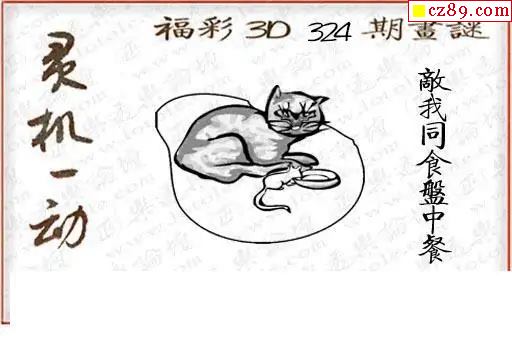 cz89.com
福彩3D 324 期畫謎
灵机一动
敵我同食盤中餐